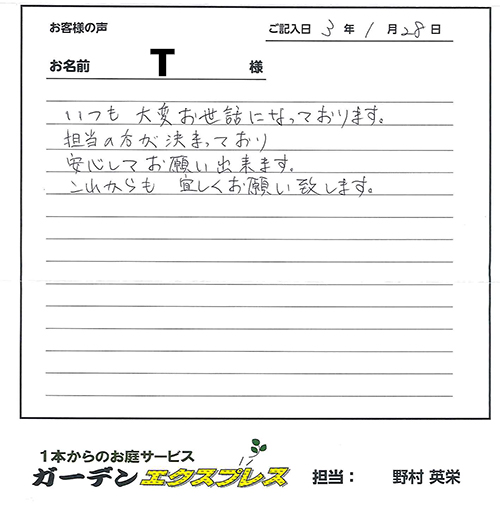 お客様の声
ご記入日 3 年 1 月 28 日
お名前 T 様
いつも 大変お世話になっております。
担当の方が決まっており
安心してお願い出来ます。
これからも 宜しくお願い致します。
1本からのお庭サービス
ガーデンエクスプレス 担当： 野村 英栄